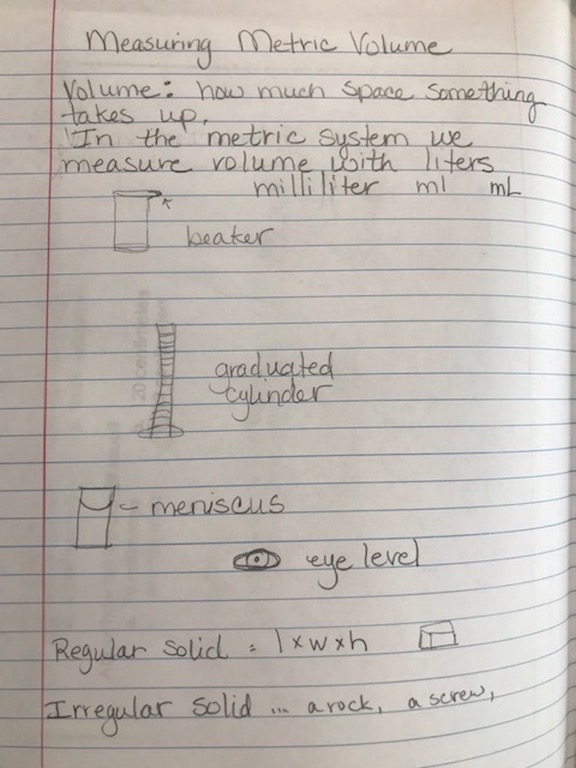 Measuring Metric Volume
Volume: how much space something
takes up.
In the metric system we
measure volume with liters
milliliter ml mL
beaker
graduated
cylinder
- meniscus
eye level
Regular solid = l x w x h
Irregular solid ... a rock, a screw,